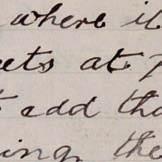 where it
at
add tha
ing the